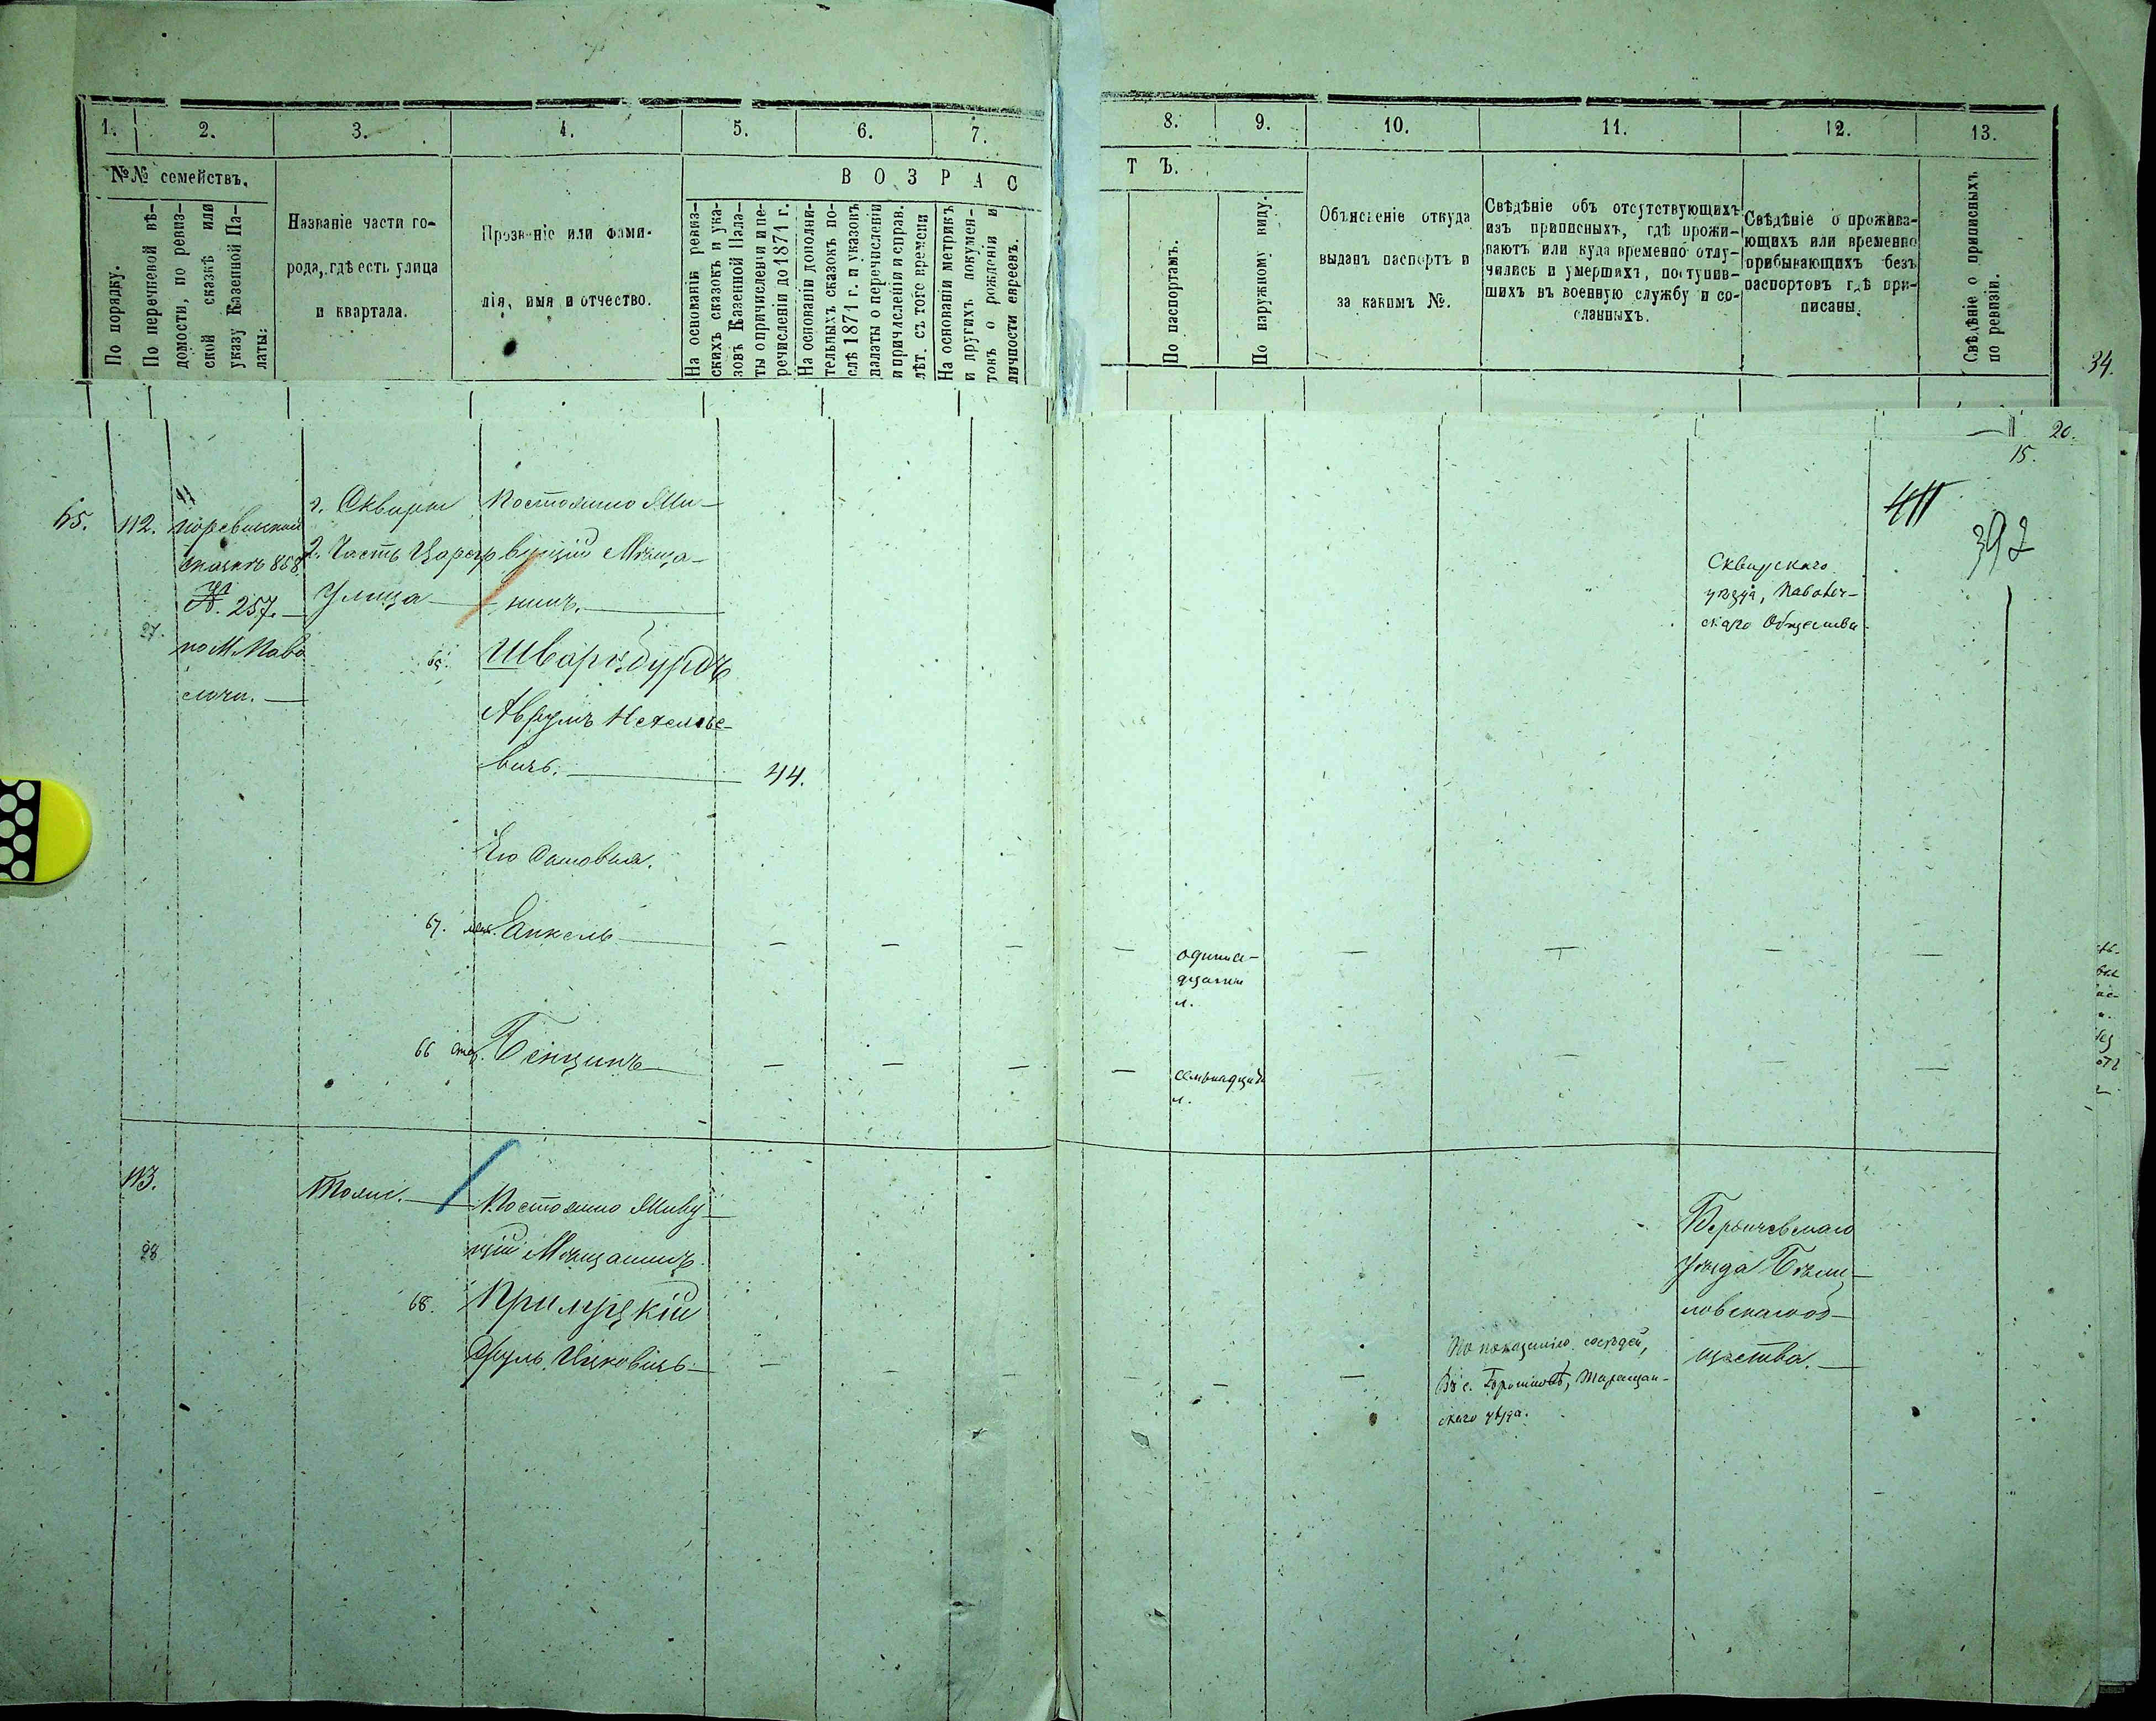 1. 2. 3. 4. 5. 6. 7. 8. 9. 10. 11. 12. 13.
№№ семействъ.
По порядку.
По перечневой вѣ-
домости, по ревиз-
ской сказкѣ или
указу Казенной Па-
латы:
Названіе части го-
рода, гдѣ есть улица
и квартала.
Прозваніе или фами-
лія, имя и отчество.
ВОЗРАС
ТЪ.
На основаніи ревиз-
скихъ сказокъ и ука-
зовъ Казенной Пала-
ты о причисленіи и пе-
речисленіи до 1871 г.
На основаніи дополни-
тельныхъ сказокъ по-
слѣ 1871 г. и указовъ
палаты о перечисленіи
и причисленіи и справ.
лѣт. съ того времени
На основаніи метрикъ
и другихъ докумен-
токъ о рожденіи и
личности евреевъ.
По паспортамъ.
По наружному виду.
Объясненіе откуда
выданъ паспортъ и
за какимъ №.
Свѣдѣніе объ отсутствующихъ
изъ приписныхъ, гдѣ прожи-
ваютъ или куда временно отлу-
чились и умершихъ, поступив-
шихъ въ военную службу и со-
сланныхъ.
Свѣдѣніе о прожива-
ющихъ или временно
прибывающихъ безъ
паспортовъ гдѣ при-
писаны.
Свѣдѣніе о приписныхъ
по ревизіи.
34.
20.
15.
65. 112.
27.
по ревизской
сказкѣ 858
№ 257.
по М. Паво
лочи.
г. Сквыры
2. Часть
Улица
Постоянно Жи-
вущій Мѣща-
нинъ.
65. Шварцбурдъ
Аврумъ
вичъ. 44.
Его Сыновья.
67. Янкель
одинна-
дцати
л.
66 Бенционъ
семьнадцать
л.
Сквирскаго
уѣзда, Паволоч-
скаго Общества
411
392
113.
28
Тоже.
Постоянно Живу-
щій Мѣщанинъ.
68. Прилуцкій
Срулъ Ицковичъ
По показанію сосѣдей,
Въ с. Таращан-
скаго уѣзда.
Бердичевскаго
Уѣзда Бѣли-
ловскаго об-
щества.